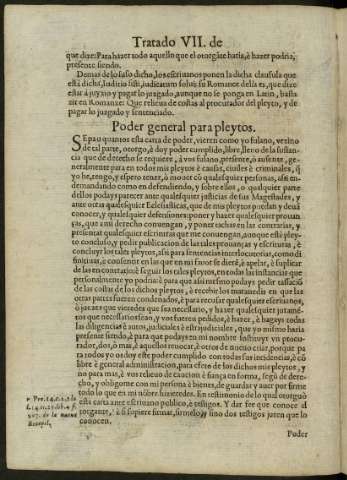 Tratado VII. de
que dize: Para hazer todo aquello que el otorgãte haria, è hazer podria,
presente siendo.
Demas de lo suso dicho, los escriuanos ponen la dicha clausula que
està dicha, Iudicio sisti, iudicatum solui: su Romance desta es, que dize
estar à juyzio y pagar lo juzgado, aunque no se ponga en Latin, basta
dezir en Romance: Que relieua de costas al procurador del pleyto, y de
pagar lo juzgado y sentenciado.
Poder general para pleytos.
SEpan quantos esta carta de poder, vieren como yo fulano, vezino
de tal parte, otorgo, è doy poder cumplido, libre, llenero de la sustan
cia que de derecho se requiere, à vos fulano, presente, ò ausente, ge-
neralmente para en todos mis pleytos è causas, ciuiles è criminales, q̃
yo he, tengo, y espero tener, è mouer cõ qualesquier personas, assi en
demandando como en defendiendo, y sobre ellos, o qualquier parte
dellos podays parecer ante qualesquier justicias de sus Magestades, y
ante otras qualesquier Eclesiasticas, que de mis pleytos puedan y deuã
conocer, y qualesquier defensiones poner y hazer qualesquier prouan
ças, que a mi derecho conuengan, y poner tachas en las contrarias, y
presentar qualesquier escrituras que me conuengan, aunque estè pley-
to concluso, y pedir publicacion de las tales prouanças y escrituras, è
concluyr los tales pleytos, assi para sentencias interlocutorias, como di
finitiuas, è consentir en las que en mi fauor se dierẽ, è apelar, è suplicar
de las en contrario, è seguir los tales pleytos, en todas las instancias que
personalmente yo podria: è para que assi mesmo podays pedir tassaciõ
de las costas de los dichos pleytos, è recebir los marauedis en que las
otras partes fueren condenados, è para recusar qualesquier escriuanos,
ò juezes que vieredes que sea necessario, y hazer qualesquier juramẽ-
tos que necessarios sean, y vos fueren pedidos, è hazer, è hagays todas
las diligencias è autos, judiciales è estrajudiciales, que yo mismo haria
presente siendo, è para que podays en mi nombre sostituyr vn procu-
rador, dos, ò mas, è aquellos reuocar, è otros de nueuo criar, porque pa
ra todos yo os doy este poder cumplido con todas sus incidencias, è cõ
libre è general administracion, para efeto de los dichos mis pleytos, y
no para mas, è vos relieuo de caucion è fiança en forma, segũ de dere-
cho, y obligome con mi persona è bienes, de guardar y auer por firme
todo lo que en mi nõbre hizieredes. En testimonio de lo qual otorguè
esta carta ante escriuano publico, è testigos. Y dar fee que conoce al
otorgante, è si supiere firmar, firmelo, y sino dos testigos juren que lo
conocen.
Poder